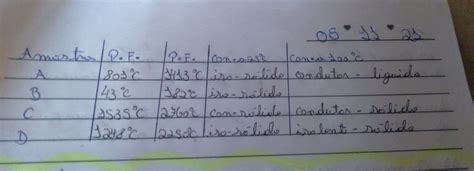 05 • 11 • 21
Amostra P.F. P.F. con. a 25°C
A 801°C 1413°C iso-sólido condutor - líquido
B 43°C 182°C iso-sólido
C 1535°C 2760°C con-sólido condutor - sólido
D 1248°C 2250°C iso-sólido isolant - sólido